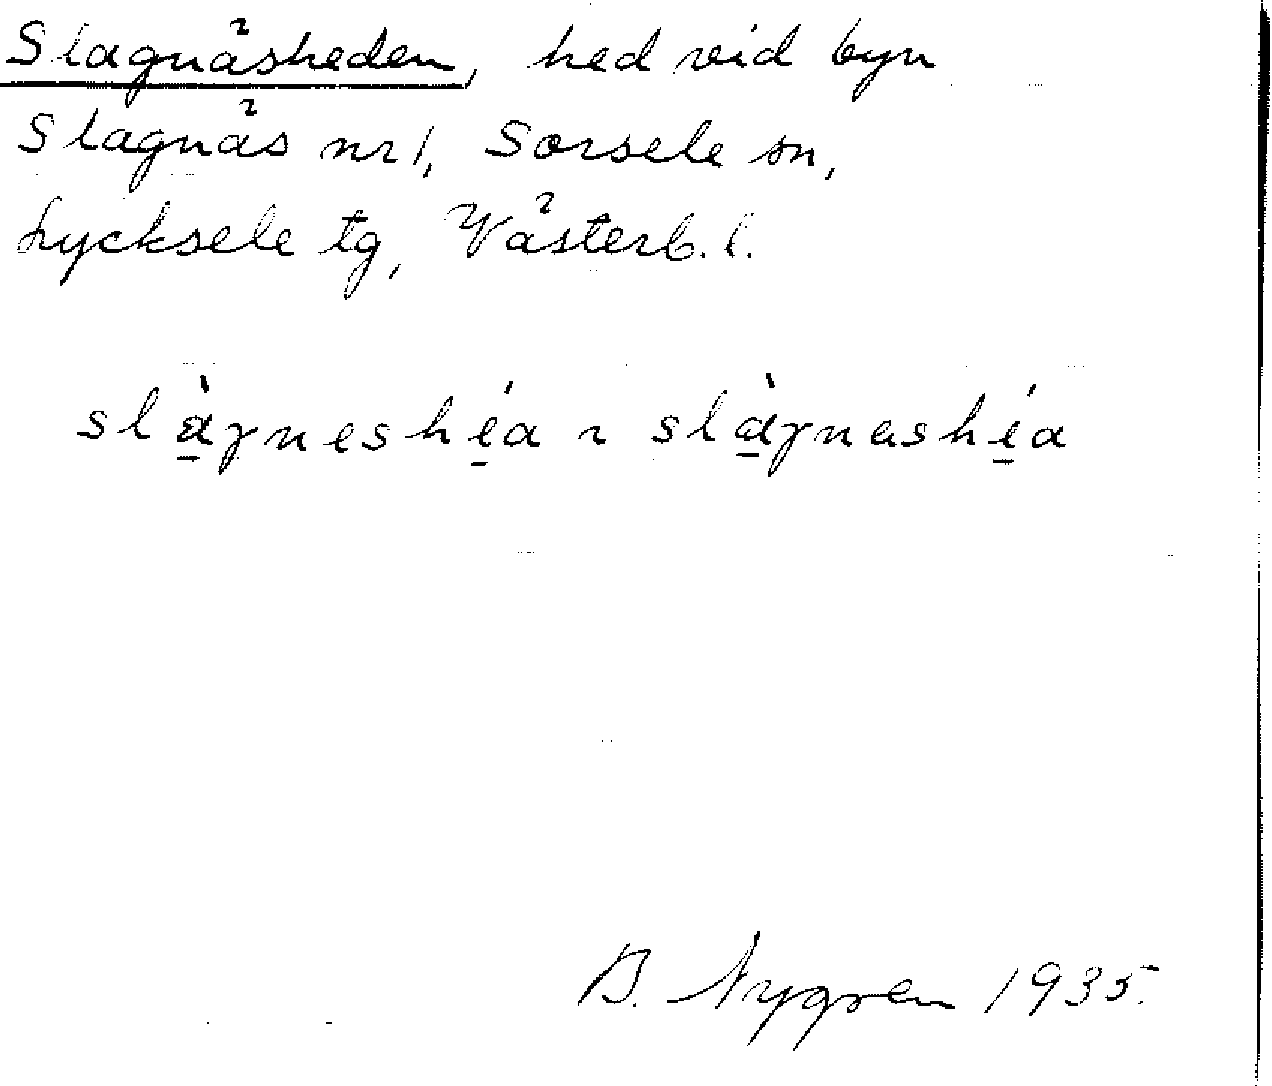 Slagnäsheden, hed vid byn
Slagnäs nr 1, Sorsele sn,
Lycksele tg, Västerb. l.
slà̱gneshé̱a ~ slà̱gnashé̱a
B. Nygren 1935.